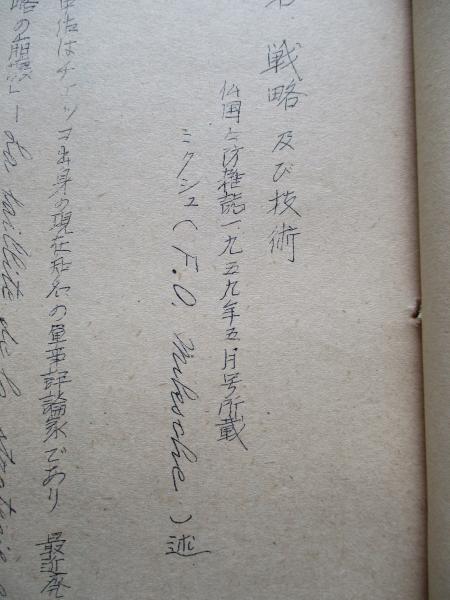 戦略及び技術
仏国々防雑誌一九五九年五月号所載
ミクシュ(F.O. Miksche)述
はチェッコ出身の現在著名の軍事評論家であり 最近発
略の崩壊」— La faillite de la stratégie